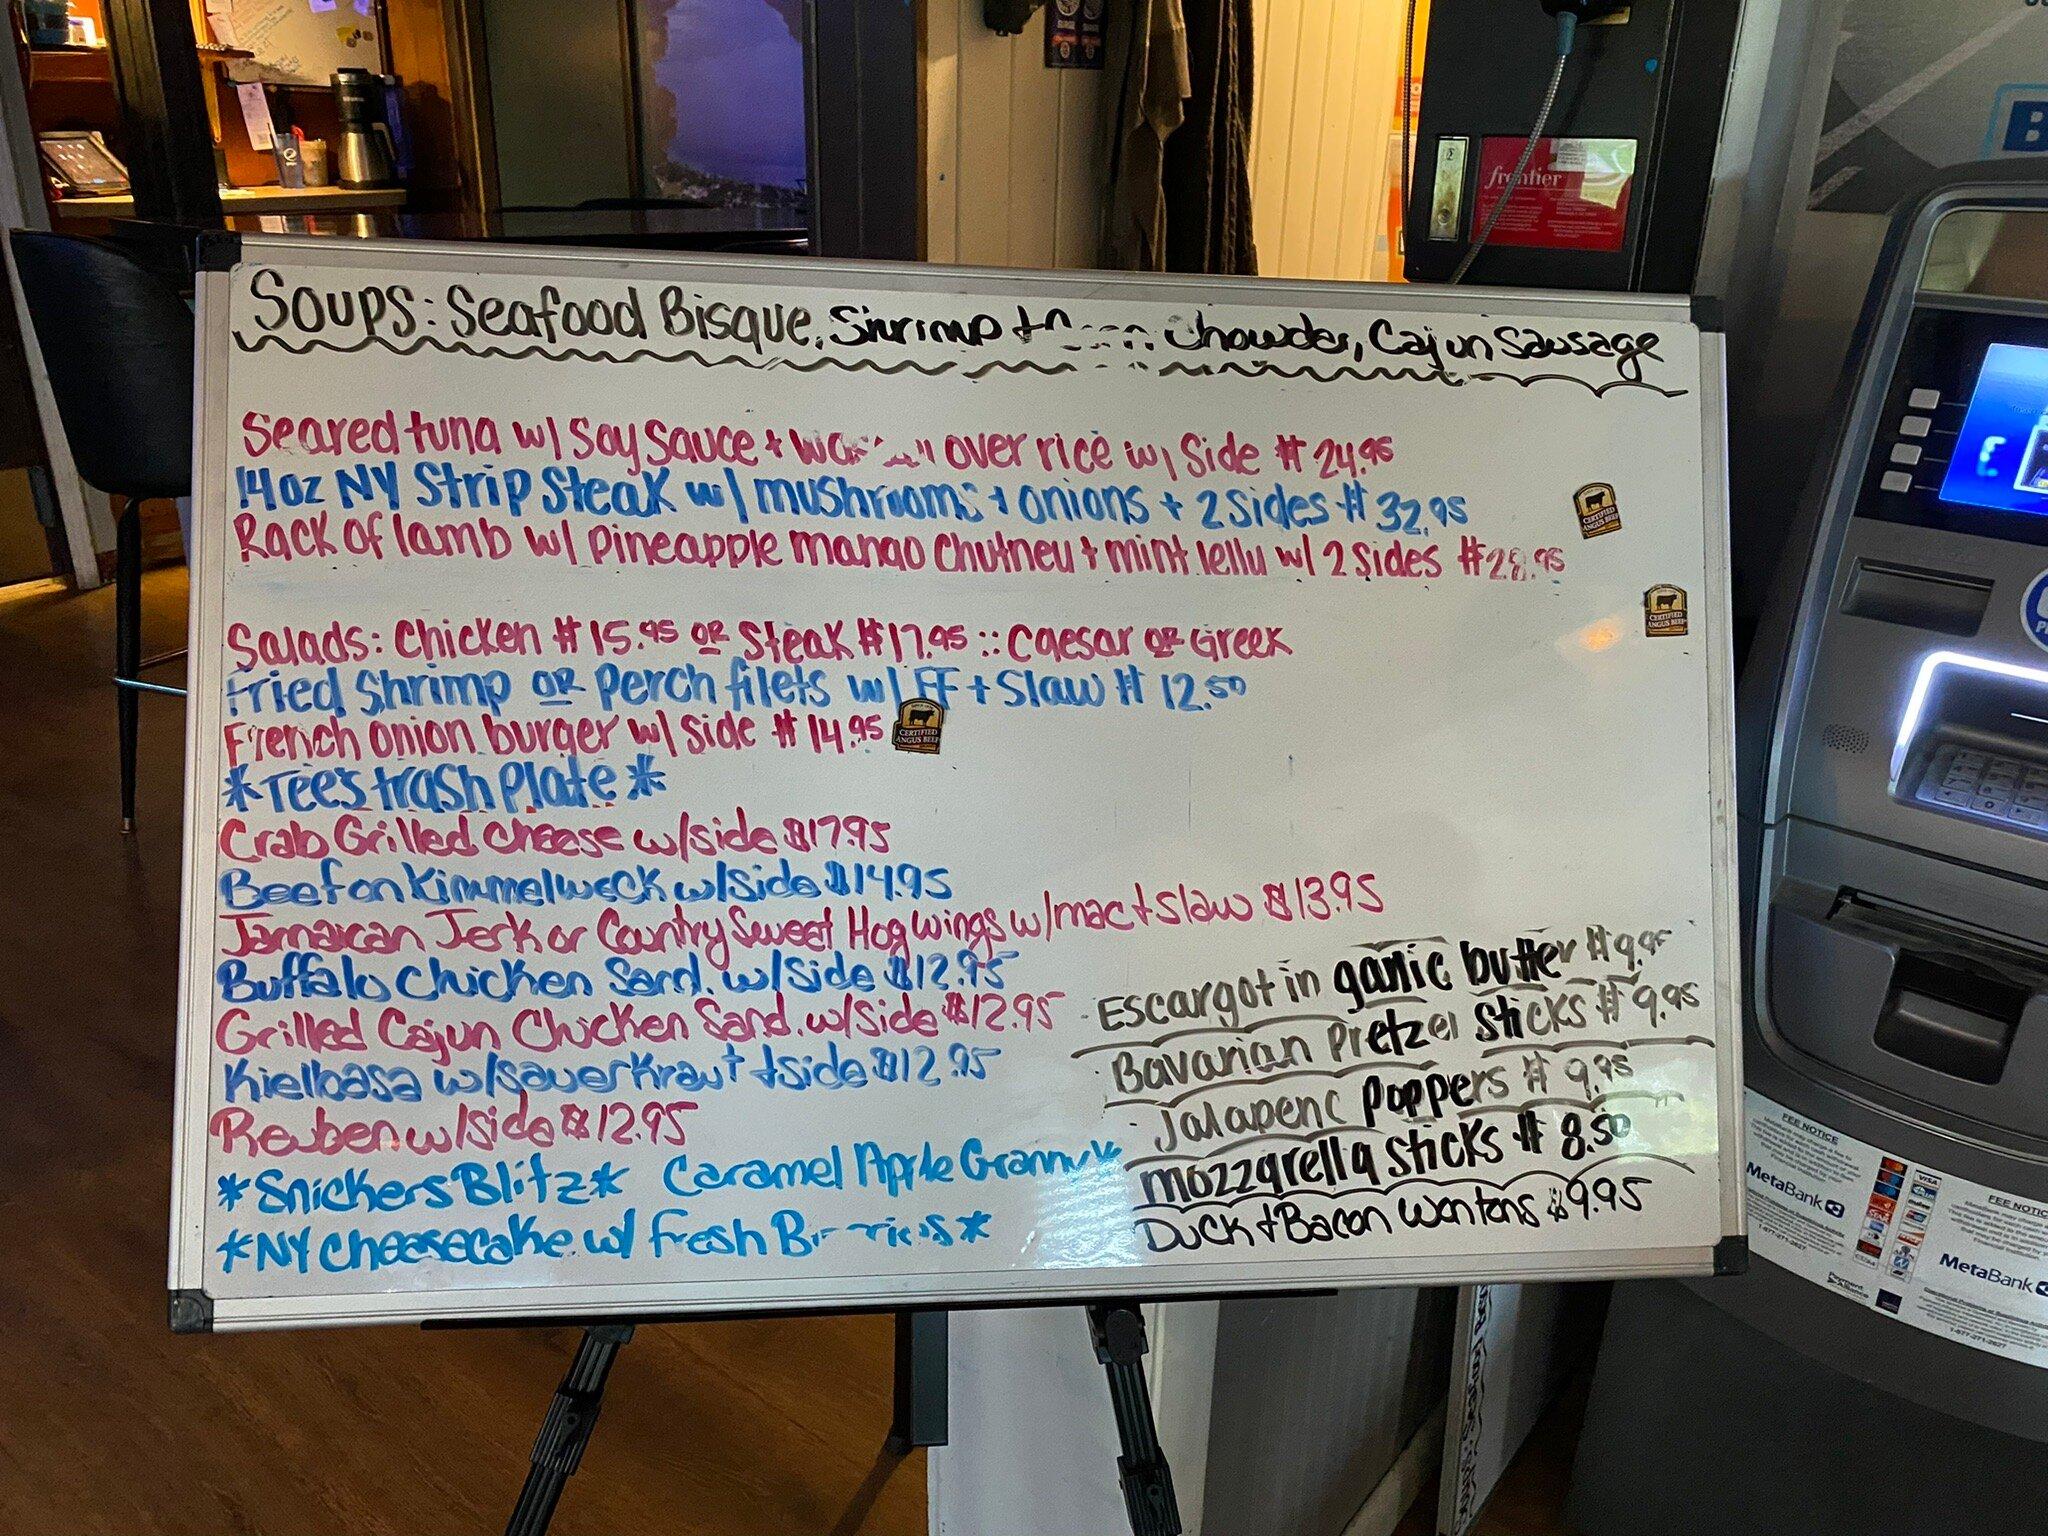 Soups: Seafood Bisque, Shrimp + Chowder, Cajun Sausage
Seared tuna w/ Soy Sauce + over rice w/ Side # 24.95
14oz NY Strip Steak w/ mushrooms + onions + 2 sides # 32.95
Rack of lamb w/ pineapple mango chutney + mint jelly w/ 2 Sides #28.95
Salads: Chicken # 15.95 OR Steak # 17.95 :: Caesar OR Greek
Fried Shrimp OR perch filets w/ FF + Slaw # 12.50
French onion burger w/ side # 14.95
CERTIFIED
ANGUS BEEF
CERTIFIED
ANGUS BEEF
CERTIFIED
ANGUS BEEF
*Tee's trash plate*
Crab Grilled Cheese w/side $17.95
Beef on Kimmelweck w/side $14.95
Jamaican Jerk or Country Sweet Hog wings w/mac + slaw $13.95
Buffalo Chicken Sand. w/side $12.95
Grilled Cajun Chicken Sand. w/side $12.95
Kielbasa w/sauerkraut + side $12.95
Reuben w/side $12.95
*Snickers Blitz* Caramel Apple Granny*
*NY cheesecake w/ fresh Berries*
Escargot in garlic butter # 9.95
Bavarian Pretzel Sticks # 9.95
Jalapeno poppers # 9.95
mozzarella sticks # 8.50
Duck + Bacon wontons $9.95
frontier
FEE NOTICE
MetaBank
1-877-271-2627
VISA
FEE NOTICE
MetaBank
1-877-271-2627